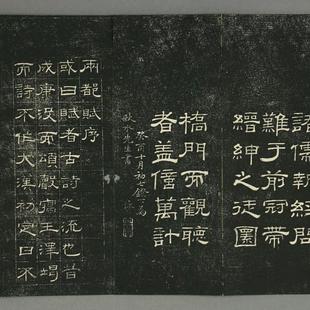 諸儒執經問
難于前冠帶
縉紳之徒圜
橋門而觀聽
者蓋億萬計
癸酉十月初七
先生書
兩都賦序
或曰賦者古詩之流也昔
成康沒而頌聲寢王澤竭
而詩不作大漢初定日不